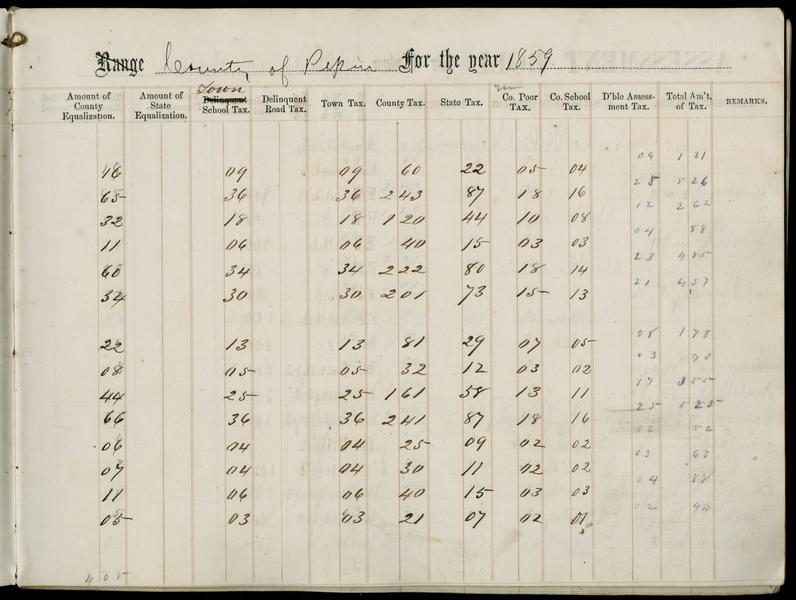 Range County of Pepin For the year 1859
Amount of County Equalization. Amount of State Equalization. Town Delinquent School Tax. Delinquent Road Tax. Town Tax. County Tax. State Tax. Co. Poor TAX. Co. School Tax. D'ble Assessment Tax. Total Am't. of Tax. REMARKS.
16 09 09 60 22 05 04 09 1 31
65 36 36 2 43 87 18 16 25 5 26
32 18 18 1 20 44 10 08 12 2 62
11 06 06 40 15 03 03 04 88
60 34 34 2 22 80 18 14 23 4 85
54 30 30 2 01 73 15 13 21 4 37
22 13 13 81 29 07 05 08 1 78
08 05 05 32 12 03 02 03 70
44 25 25 1 61 58 13 11 17 3 55
66 36 36 2 41 87 18 16 25 5 25
06 04 04 25 09 02 02 02 52
07 04 04 30 11 02 02 03 63
11 06 06 40 15 03 03 04 88
05 03 03 21 07 02 01 02 44
4 05